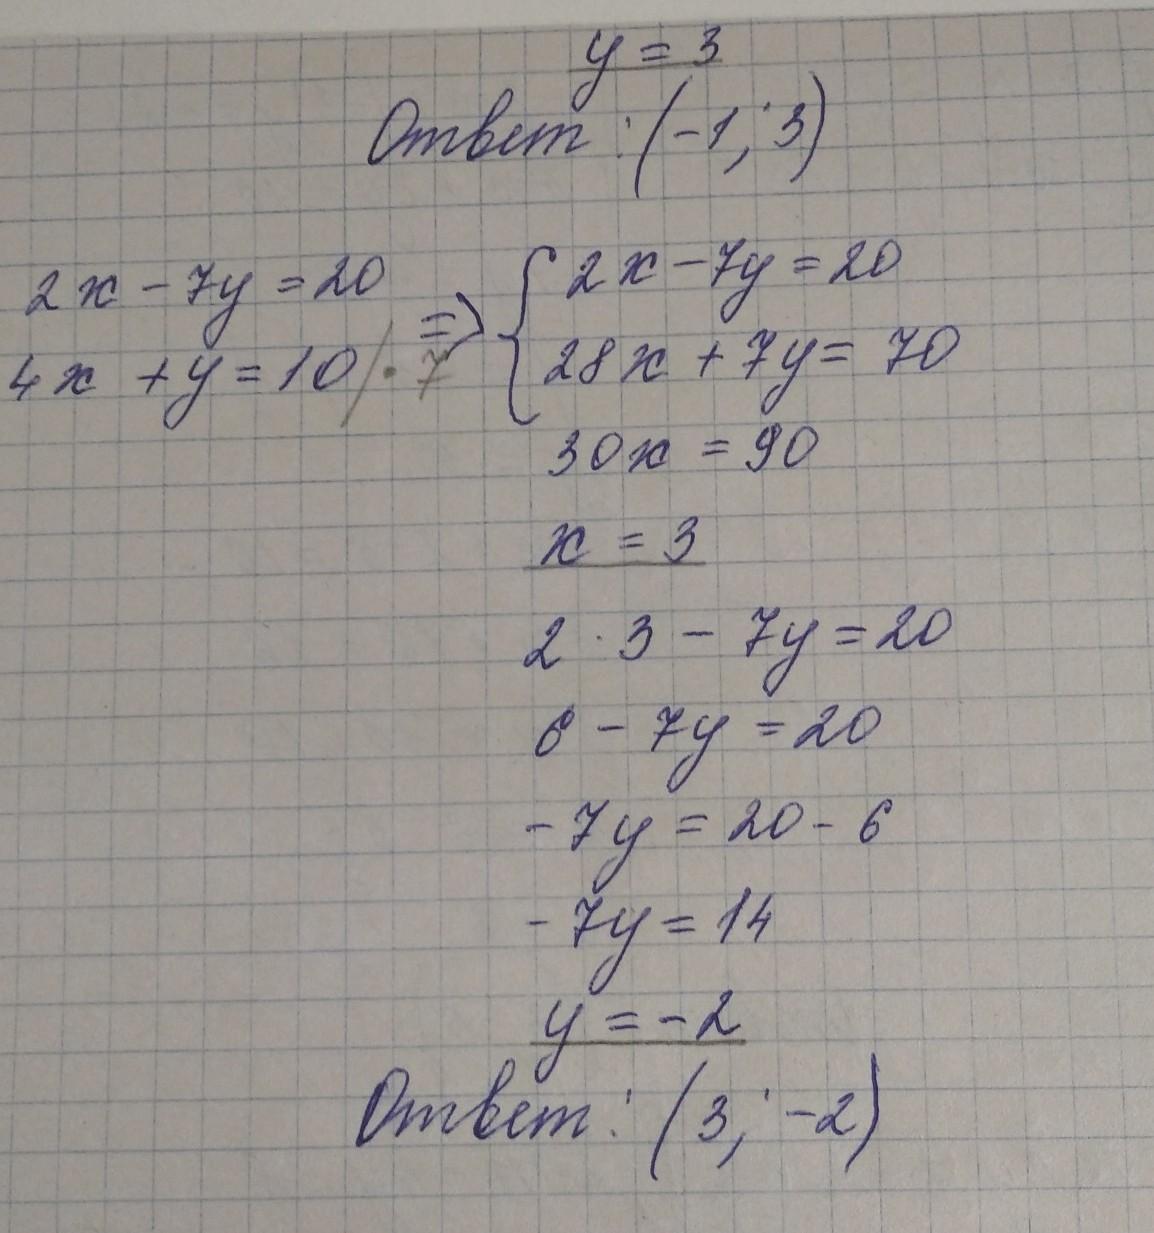 y = 3
Ответ: (-1; 3)
2x - 7y = 20
4x + y = 10 / · 7
=> { 2x - 7y = 20
28x + 7y = 70
30x = 90
x = 3
2 · 3 - 7y = 20
6 - 7y = 20
- 7y = 20 - 6
- 7y = 14
y = -2
Ответ: (3; -2)